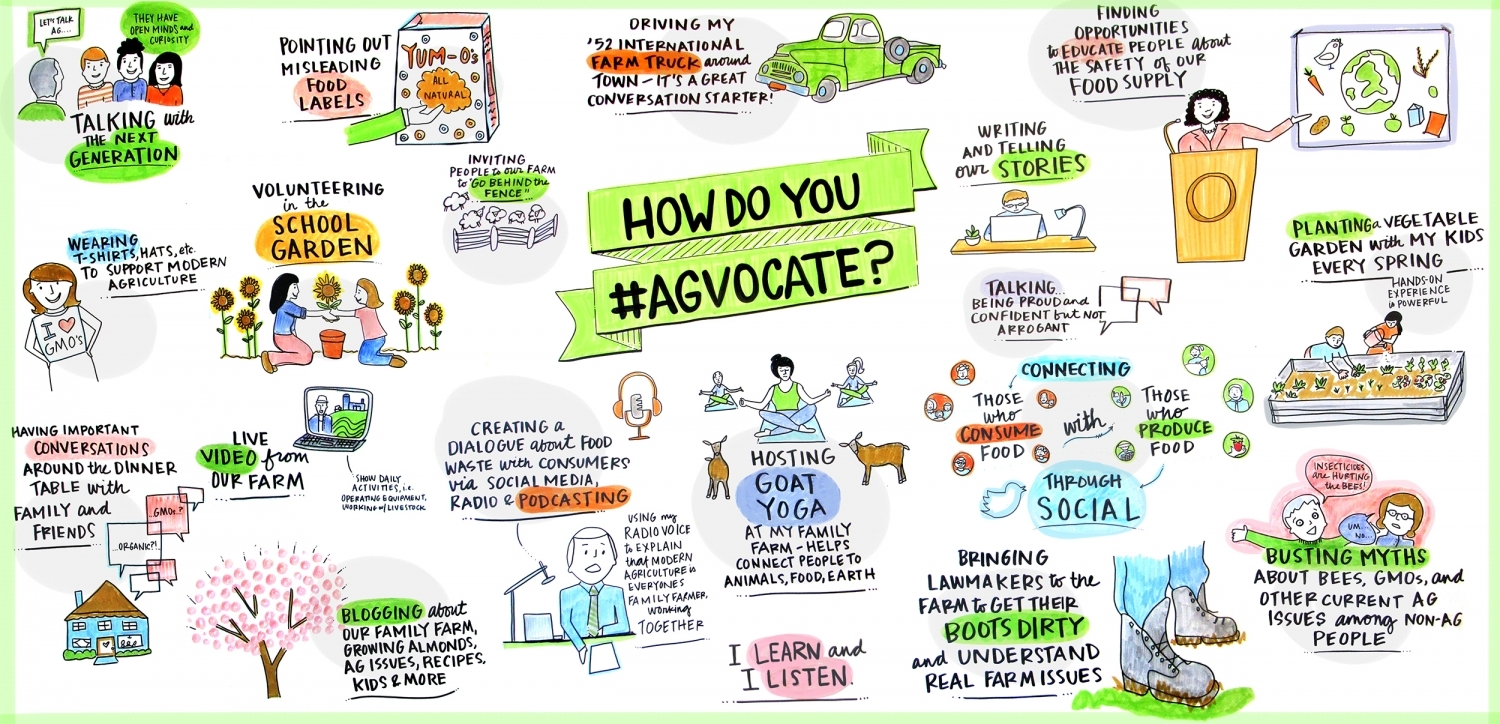 LET'S TALK
AG....
THEY HAVE
OPEN MINDS and
CURIOSITY
TALKING with
THE NEXT
GENERATION
POINTING OUT
MISLEADING
FOOD
LABELS
YUM-O's
ALL
NATURAL
DRIVING MY
'52 INTERNATIONAL
FARM TRUCK around
TOWN - IT'S A GREAT
CONVERSATION STARTER!
FINDING
OPPORTUNITIES
to EDUCATE PEOPLE about
THE SAFETY of OUR
FOOD SUPPLY
INVITING
PEOPLE to our FARM
to "GO BEHIND the
FENCE"
VOLUNTEERING
in the
SCHOOL
GARDEN
HOW DO YOU
#AGVOCATE?
WRITING
AND TELLING
our STORIES
WEARING
T-SHIRTS, HATS, etc.
TO SUPPORT MODERN
AGRICULTURE
I ♥
GMO'S
PLANTING a VEGETABLE
GARDEN with MY KIDS
EVERY SPRING
HANDS-ON
EXPERIENCE
is POWERFUL
TALKING...
BEING PROUD and
CONFIDENT but NOT
ARROGANT
CONNECTING
THOSE
who
CONSUME
FOOD
with
THOSE
who
PRODUCE
FOOD
THROUGH
SOCIAL
HAVING IMPORTANT
CONVERSATIONS
AROUND the DINNER
TABLE with
FAMILY and
FRIENDS
GMOs..?
...ORGANIC?!..
LIVE
VIDEO from
OUR FARM
SHOW DAILY
ACTIVITIES, i.e.
OPERATING EQUIPMENT,
WORKING w/ LIVESTOCK
CREATING a
DIALOGUE about FOOD
WASTE with CONSUMERS
via SOCIAL MEDIA,
RADIO & PODCASTING
USING my
RADIO VOICE
to EXPLAIN
that MODERN
AGRICULTURE is
EVERYONES
FAMILY FARMER,
working
TOGETHER
HOSTING
GOAT
YOGA
AT MY FAMILY
FARM - HELPS
CONNECT PEOPLE TO
ANIMALS, FOOD, EARTH
BLOGGING about
OUR FAMILY FARM,
GROWING ALMONDS,
AG ISSUES, RECIPES,
KIDS & MORE
I LEARN and
I LISTEN.
BRINGING
LAWMAKERS to the
FARM to GET THEIR
BOOTS DIRTY
and UNDERSTAND
REAL FARM ISSUES
INSECTICIDES
are HURTING
the BEES!
UM...
NO...
BUSTING MYTHS
ABOUT BEES, GMOs, and
OTHER CURRENT AG
ISSUES among NON-AG
PEOPLE